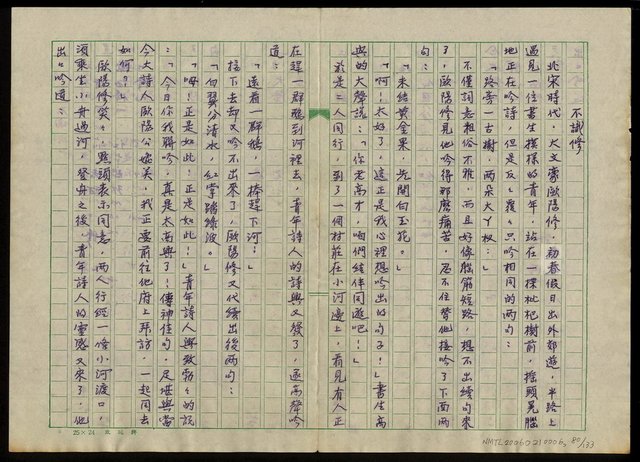 不識修
北宋時代,大文豪歐陽修,勑春假日出外郊遊,半路上
遇見一位書生模樣的青年,站在一棵枇杷樹前,搖頭晃腦
地正在吟詩,但是反反覆覆只吟相同的兩句:
「路旁一古樹,兩朵大丫杈:」
不僅詞意粗俗不雅,而且好像腦筋短路,想不出續句來
了,歐陽修見他吟得那麼痛苦,忍不住替他接吟了下面兩
句:
「未結黃金果,先開白玉花。」
「啊!太好了,這正是我心裡想吟出的句子!」書生高
興的大聲說:「你老高才,咱們結伴同遊吧!」
於是二人同行,到了一個村莊在小河邊上,看見有人正
在趕一群鵝到河裡去,青年詩人的詩興又發了,遂高聲吟
道:
「遠看一群鵝,一棒趕下河!」
接下去却又吟不出來了,歐陽修又代續出後兩句:
「白翼分清水,紅掌踏綠波。」
「嗨!正是如此!正是如此!」青年詩人興致勃勃的說
:「今日你我聯吟,真是太高興了!傳神佳句,足堪與當
今大詩人歐陽公媲美,我正要前往他府上拜訪,一起同去
如何?」
歐陽修笑笑,點頭表示同意,兩人行經一條小河渡口,
須乘坐小舟過河,登舟之後,青年詩人的靈感又來了,他
出口吟道:
25×24
NMTL20060210006
80/133